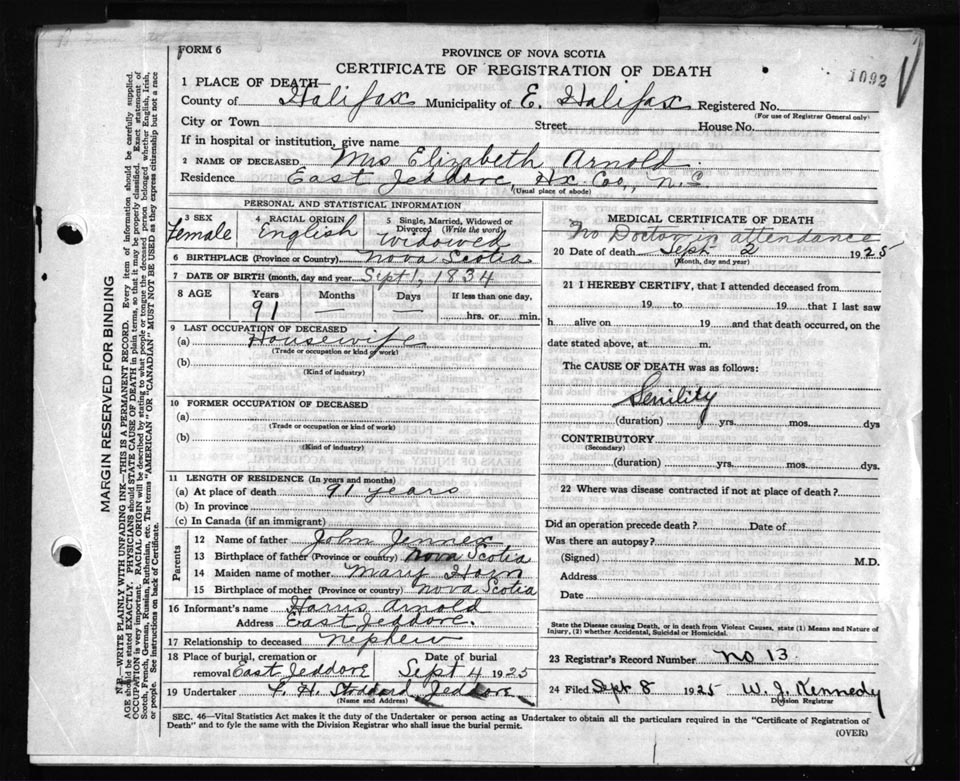 FORM 6
PROVINCE OF NOVA SCOTIA
CERTIFICATE OF REGISTRATION OF DEATH
1092
1 PLACE OF DEATH—
County of Halifax Municipality of E. Halifax Registered No.
(For use of Registrar General only)
City or Town Street House No.
If in hospital or institution, give name
2 NAME OF DECEASED Mrs Elizabeth Arnold.
Residence East Jeddore, Hx. Coo, N.S
(Usual place of abode)
PERSONAL AND STATISTICAL INFORMATION
3 SEX Female
4 RACIAL ORIGIN English
5 Single, Married, Widowed or Divorced (Write the word) Widowed
6 BIRTHPLACE (Province or Country) Nova Scotia
7 DATE OF BIRTH (month, day and year) Sept 1, 1834
8 AGE Years 91 Months — Days — If less than one day, hrs. or min.
9 LAST OCCUPATION OF DECEASED
(a) Housewife
(Trade or occupation or kind of work)
(b)
(Kind of industry)
10 FORMER OCCUPATION OF DECEASED
(a)
(Trade or occupation or kind of work)
(b)
(Kind of industry)
11 LENGTH OF RESIDENCE (In years and months)
(a) At place of death 91 years
(b) In province
(c) In Canada (if an immigrant)
Parents
12 Name of father John Jennex
13 Birthplace of father (Province or country) Nova Scotia
14 Maiden name of mother Mary
15 Birthplace of mother (Province or country) Nova Scotia
16 Informant's name Harris Arnold
Address East Jeddore.
17 Relationship to deceased nephew
18 Place of burial, cremation or removal East Jeddore Date of burial Sept 4 1925
19 Undertaker Jeddore
(Name and Address)
MEDICAL CERTIFICATE OF DEATH
No Doctor in attendance
20 Date of death Sept 2 1925
(Month, day and year)
21 I HEREBY CERTIFY, that I attended deceased from
19 to 19 that I last saw
h alive on 19 and that death occurred, on the
date stated above, at m.
The CAUSE OF DEATH was as follows:
Senility
(duration) yrs. mos. dys
CONTRIBUTORY
(Secondary)
(duration) yrs. mos. dys.
22 Where was disease contracted if not at place of death?
Did an operation precede death? Date of
Was there an autopsy?
(Signed) M.D.
Address
Date
State the Disease causing Death, or in death from Violent Causes, state (1) Means and Nature of
Injury, (2) whether Accidental, Suicidal or Homicidal.
23 Registrar's Record Number No 13
24 Filed Sept 8 1925 W. J. Kennedy
Division Registrar
SEC. 46—Vital Statistics Act makes it the duty of the Undertaker or person acting as Undertaker to obtain all the particulars required in the "Certificate of Registration of
Death" and to fyle the same with the Division Registrar who shall issue the burial permit.
(OVER)
MARGIN RESERVED FOR BINDING
N.B.—WRITE PLAINLY WITH UNFADING INK—THIS IS A PERMANENT RECORD. Every item of information should be carefully supplied.
AGE should be stated EXACTLY. PHYSICIANS should STATE CAUSE OF DEATH in plain terms, so that it may be properly classified. Exact statement of
OCCUPATION is very important. RACIAL ORIGIN will be described by stating to what people or tongue the deceased person belonged whether English, Irish,
Scotch, French, German, Russian, Ruthenian, etc. The terms "AMERICAN" OR "CANADIAN" MUST NOT BE USED as they express citizenship but not a race
or people. See instructions on back of Certificate.